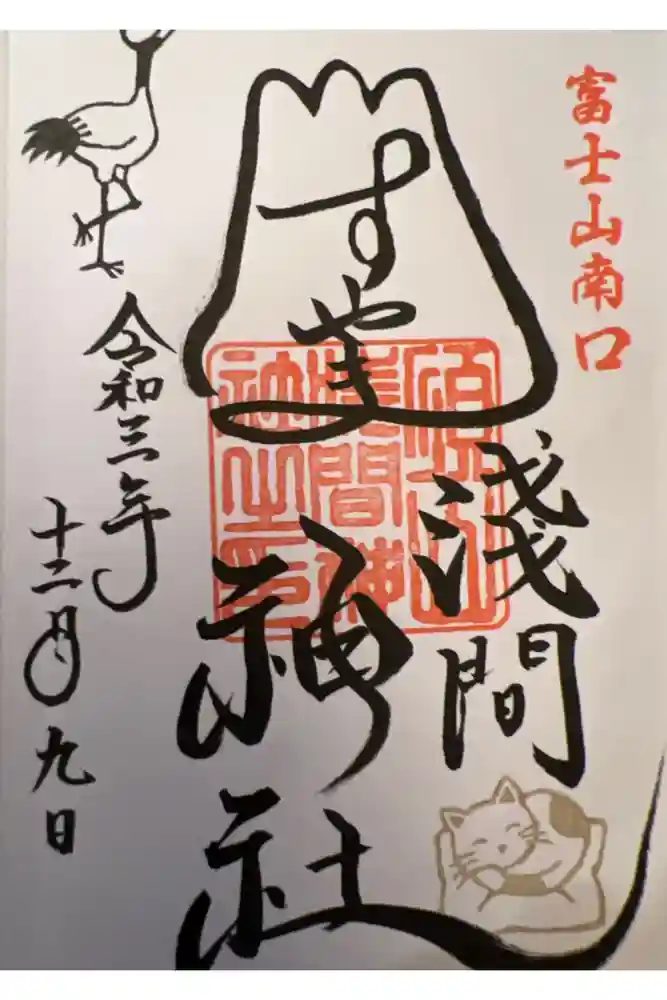 富士山南口
すやま
淺間
神社
須山
淺間神
社之印
令和三年
十二月九日